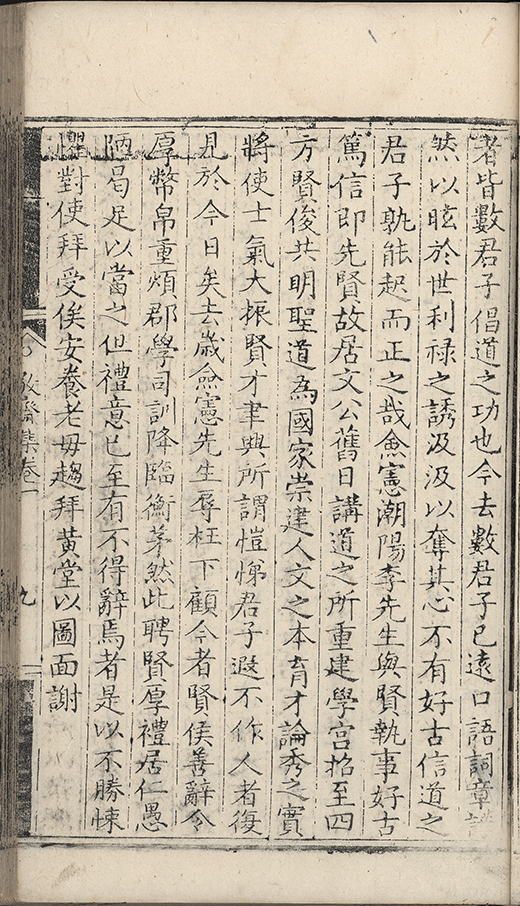 者皆數君子倡道之功也今去數君子已遠口語詞章譁
然以眩於世利祿之誘汲汲以奪其心不有好古信道之
君子孰能起而正之哉僉憲潮陽李先生與賢執事好古
篤信即先賢故居文公舊日講道之所重建學宮招至四
方賢俊共明聖道為國家崇建人文之本育才論秀之實
將使士氣大振賢才聿興所謂愷悌君子遐不作人者復
見於今日矣去歲僉憲先生辱枉下顧今者賢侯善辭令
厚幣帛重煩郡學司訓降臨衡茅然此聘賢厚禮居仁愚
陋曷足以當之但禮意已至有不得辭焉者是以不勝悚
懼對使拜受俟安養老母趨拜黃堂以圖面謝
敬齋集卷一
九